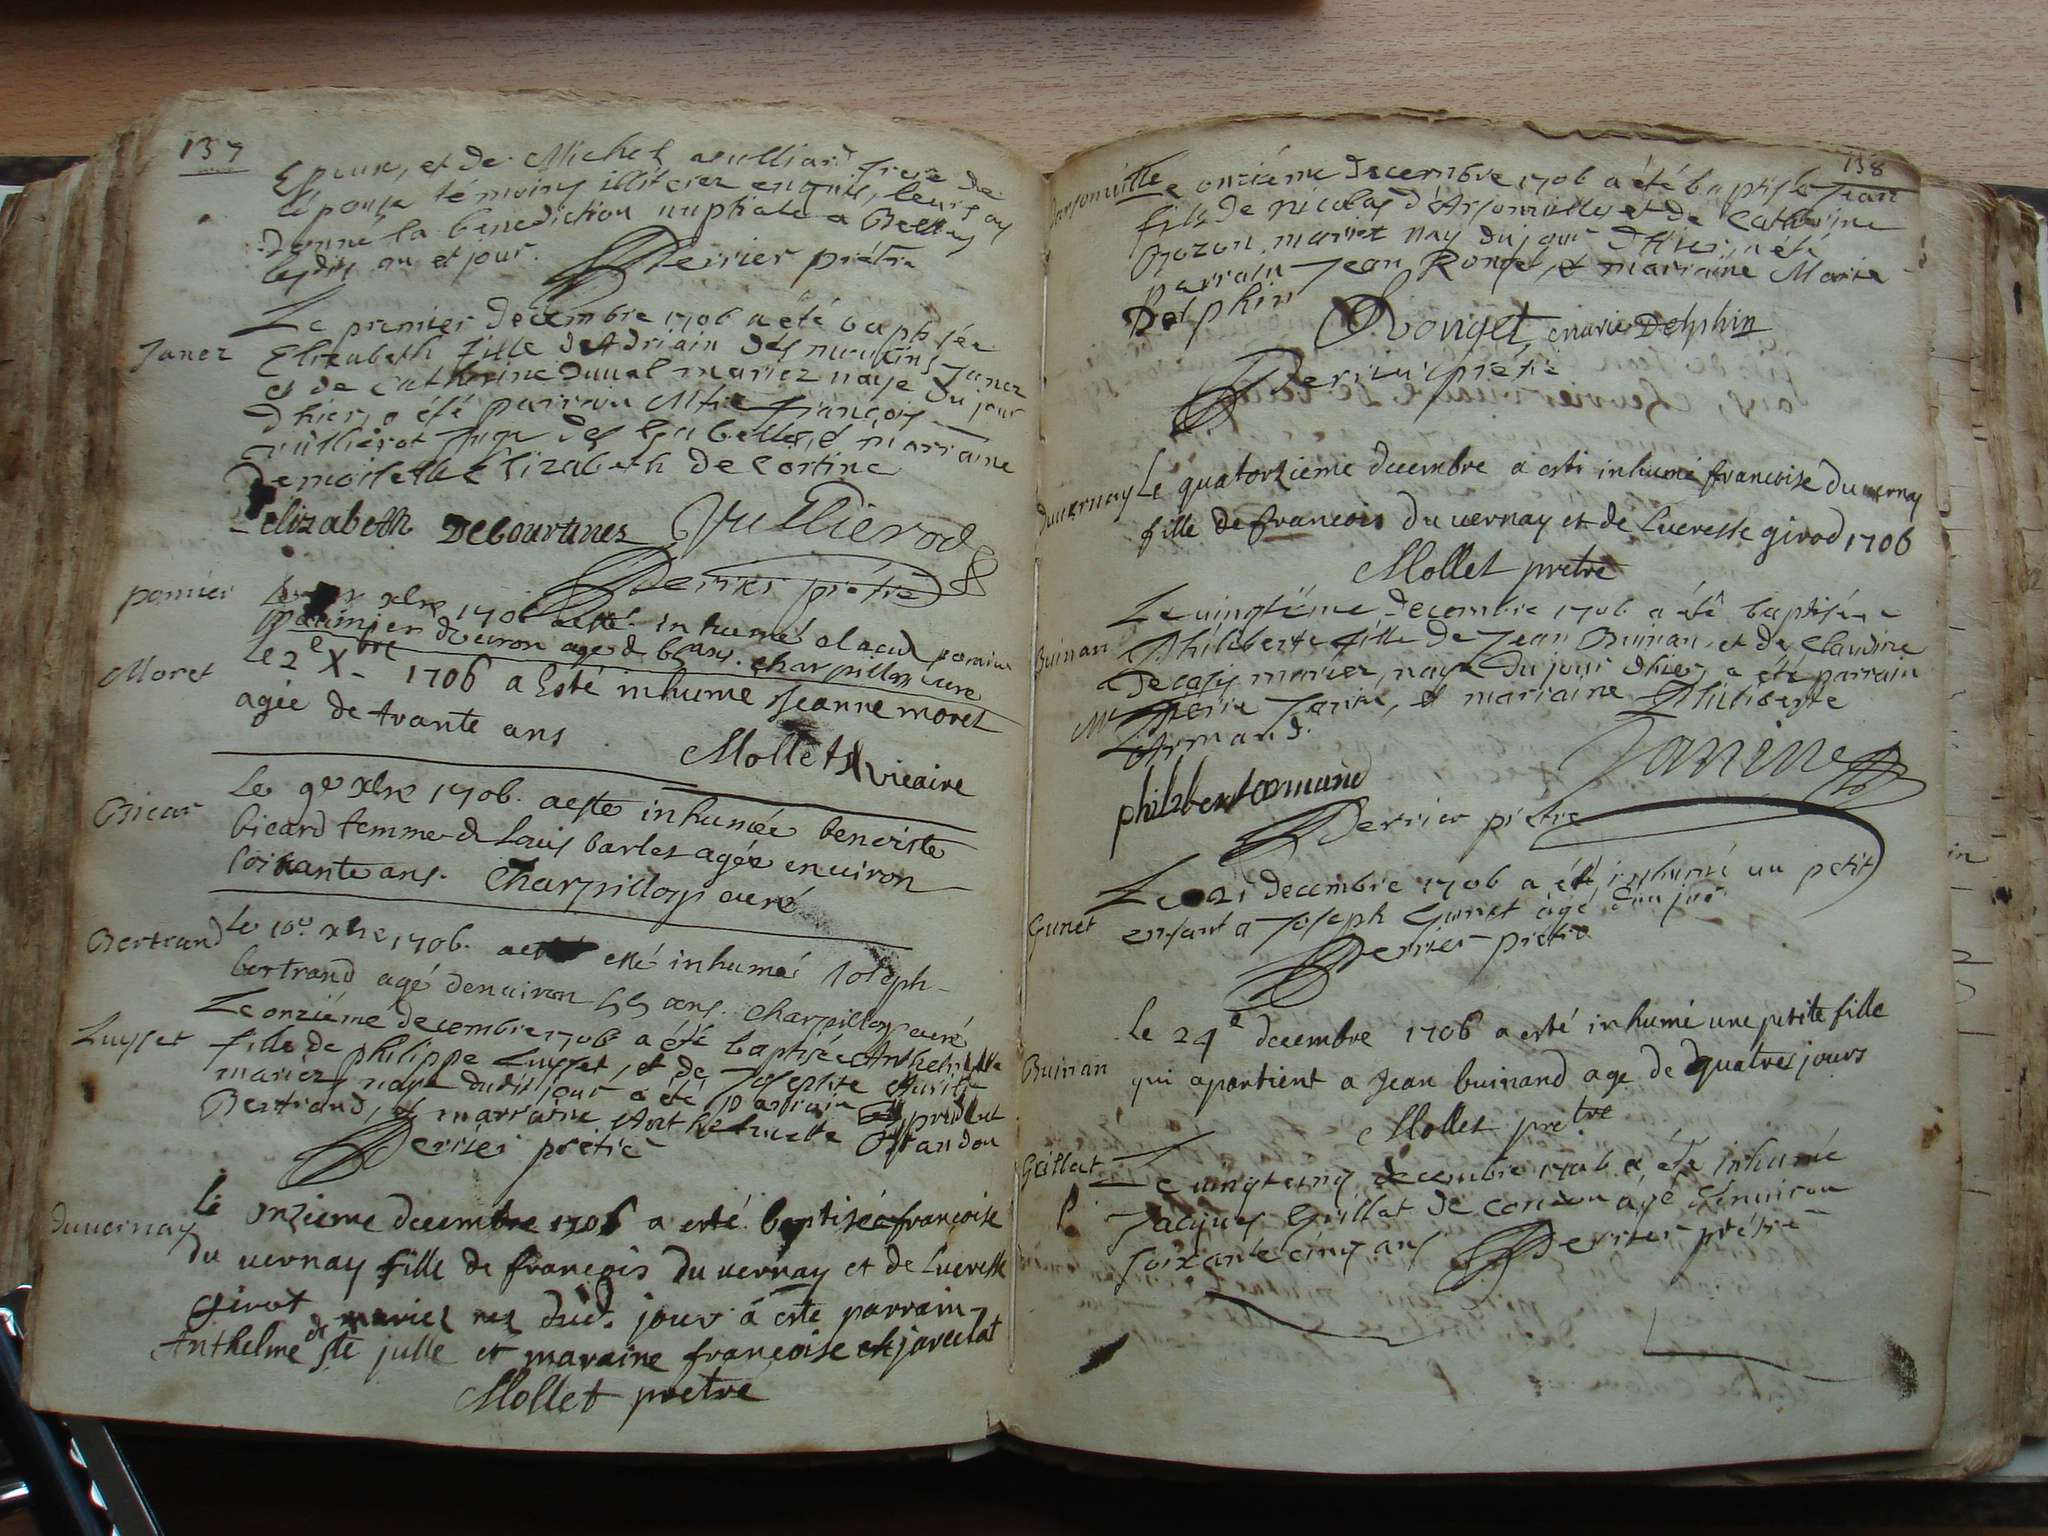 137
Epoux, et de Michel frere de
lépouse témoins illiterez enquis, leurs ay
donné la benediction nuptiale a Belley
lesdits an et jour. Perrier prétre
Janez
Le premier decembre 1706 a été baptisée
Elizabeth fille d'Adriain des moulins Janez
et de Catherine Duval mariez naye du jour
d'hier, a été parrain Mtre François
Vullierot Juge des Gabelles, et marraine
Demoiselle Elizabeth de Cortine
Elizabeth Decourtines Vullierod
Perrier prétre
pomier
xbre 1706 a esté inhumé Claude pomier
d'environ charpillon curé
Moret
le 2e Xbre 1706 a Esté inhume Jeanne moret
agée de trante ans
Mollet vicaire
Bicar
le 9e xbre 1706. a esté inhumée benoiste
bicard femme de Louis barlet agée environ
soixante ans. Charpillon curé
Bertrand
le 10e xbre 1706. a esté inhumé Joseph
bertrand agé denuiron 55 ans. Charpillon curé
Luysset
Le onziéme decembre 1706 a été baptisée Anthelmette
fille de philippe Luysset, et de Josephte
mariez naye dudit jour a été parrain
Bertrand, et marraine Anthelmette
Perrier prétre
Duvernay
le onzieme decembre 1706 a esté baptisée françoise
du vernay fille de françois du vernay et de Lucresse
girot mariez nez dud. jour a esté parrain
Anthelme de ste julle et maraine françoise javellat
Mollet pretre
138
Darsonuille
Le onziéme decembre 1706 a été baptisé Jean
fils de nicolas d'Arsonuille et de Catherine
Bozon mariez nay du jour d'hier, a été
parrain Jean Ronget, et marraine Marie
Delphin
Rouget, marie Delphin
Perrier prétre
Duuernay
Le quatorzieme decembre a esté inhumé francoise du vernay
fille de francois du uernay et de Lucresse girod 1706
Mollet pretre
Buinan
Le uingtiéme decembre 1706 a été baptisée
Philiberte fille de Jean Buinan, et de Claudine
mariez, naye du jour d'hier, a été parrain
Mre Pierre Janine, et marraine Philiberte
Armand.
philiberte armand Janine
Perrier prétre
Gunet
Le 21 decembre 1706 a été inhumé un petit
enfant a Joseph Gunet agé d'un jour
Perrier prétre
Buinan
Le 24e decembre 1706 a esté inhumé une petite fille
qui apartient a Jean buinand age de quatres jours
Mollet pretre
Gaillat
Le uingtcinq decembre 1706 a été inhumé
Jacques Guillat de agé d'enuiron
soixante cinq ans Perrier prétre